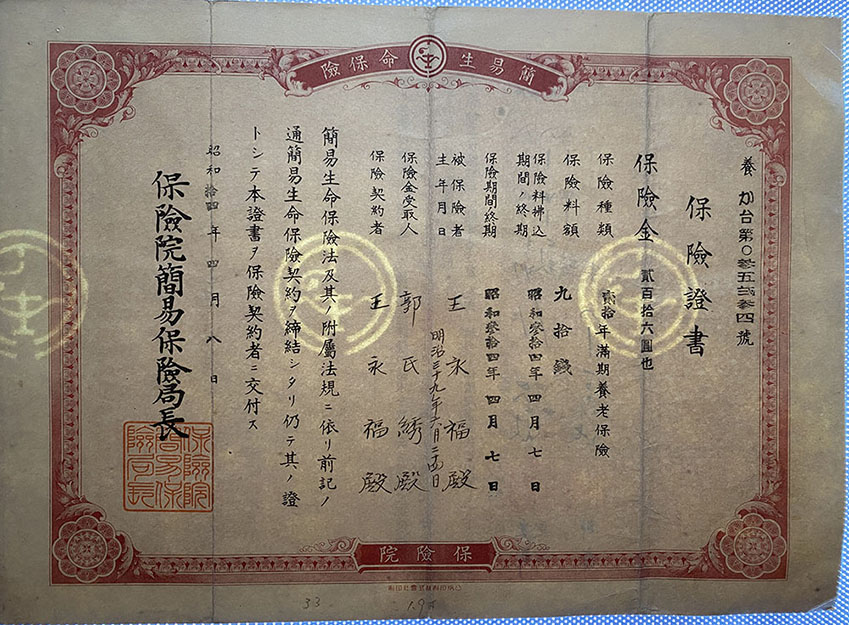 簡易生命保險
養 カ台第〇參五貳參四號
保險證書
保險金 貳百拾六圓也
保險種類 貳拾年滿期養老保險
保險料額 九拾錢
保險料拂込期間ノ終期 昭和參拾四年四月七日
保險期間終期 昭和參拾四年四月七日
被保險者 王永福殿
生年月日 明治三十九年六月二十四日
保險金受取人 郭氏綉殿
保險契約者 王永福殿
簡易生命保險法及其ノ附屬法規ニ依リ前記ノ
通簡易生命保險契約ヲ締結シタリ仍テ其ノ證
トシテ本證書ヲ保險契約者ニ交付ス
昭和拾四年四月八日
保險院簡易保險局長
保險院
簡易保
險局長
保險院
33